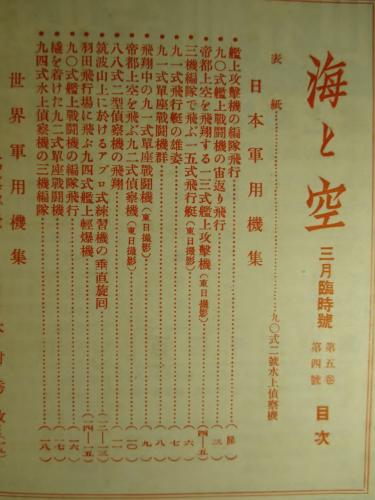 海と空 三月臨時號 第五卷 第四號 目次
表紙 九〇式二號水上偵察機
日本軍用機集
艦上攻擊機の編隊飛行
九〇式艦上戰鬪機の宙返り飛行 (三)
帝都上空を飛翔する一三式艦上攻擊機(東日撮影) (四—五)
三機編隊で飛ぶ一五式飛行艇(東日撮影) (六)
九一式飛行艇の雄姿 (七)
九一式單座戰鬪機群 (八)
飛翔中の九一式單座戰鬪機(東日撮影) (九)
帝都上空を飛ぶ九二式偵察機(東日撮影) (一〇)
八八式二型偵察機の飛翔 (一一)
筑波山上に於けるアブロ式練習機の垂直旋回 (一二—一三)
羽田飛行場に飛ぶ九四式艦上輕爆機 (一四—一五)
九〇式艦上戰鬪機の編隊飛行 (一六)
橇を着けた九二式單座戰鬪機 (一七)
九四式水上偵察機の三機編隊 (一八)
世界軍用機集